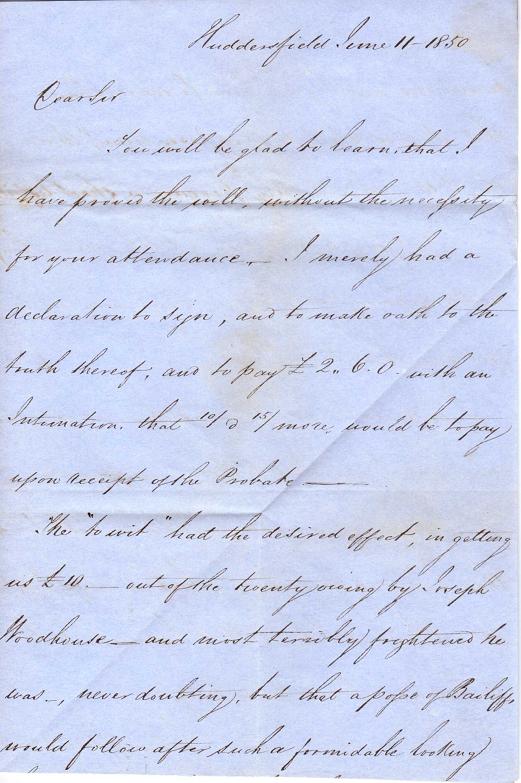 Huddersfield June 11 - 1850
Dear Sir
You will be glad to learn, that I
have proved the will, without the necessity
for your attendance, — I merely had a
declaration to sign, and to make oath to the
truth thereof, and to pay £ 2,, 6. 0. with an
Intimation. that 10/ 15/ more, would be to pay
upon receipt of the Probate —
The "to wit" had the desired effect, in getting
us £ 10. — out of the twenty owing by Joseph
Woodhouse — and most terribly frightened he
was —, never doubting, but that a posse of Bailiffs
would follow after such a formidable looking